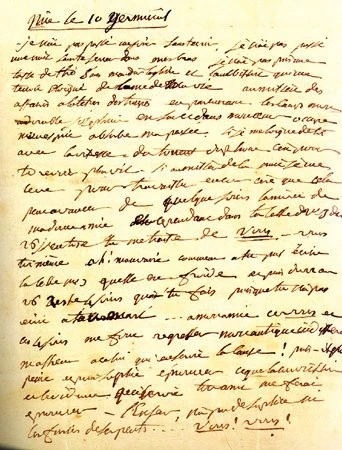 Nice le 10 germinal
je n'ai pas passé un jour sans t'aimer, je n'ai pas passé
une nuit sans te serrer dans mes bras, je n'ai pas pris une
tasse de thé sans maudire la gloire et l'ambition qui me
tienne éloigné de l'ame de ma vie au milieu des
affaires a la tete des troupes en parcourant les camps mon
adorable est seule dans mon coeur occupe
mon esprit absorbe ma pensée si je m'eloigne de toi
avec la vitesse du torrent du rhone c'est pour
te revoir plus vite si au milieu de la nuit je me
leve pour travailler encore c'est que cela
peut avancer de quelques jours l'arrivée de
ma douce amie et cependant dans ta lettre du au
26 ventose tu me traites de vous — vous
toi même ah mauvaise comment as tu pu écrire
cette lettre qu'elle est froide et puis du au
26 reste jours qu'as tu fais puisque tu n'as pas
écrit a ton mari ... ah mon amie ce vous et
ces jours me font regretter mon antique indifference
malheur a celui qui en serait la cause ! puisse-t-il pour
peine et pour supplice eprouver ce que la conviction
et l'evidence qui servit ton ami me ferai
eprouver — l'enfer n'a pas de supplice ni
les furies de serpents ... vous ! vous !